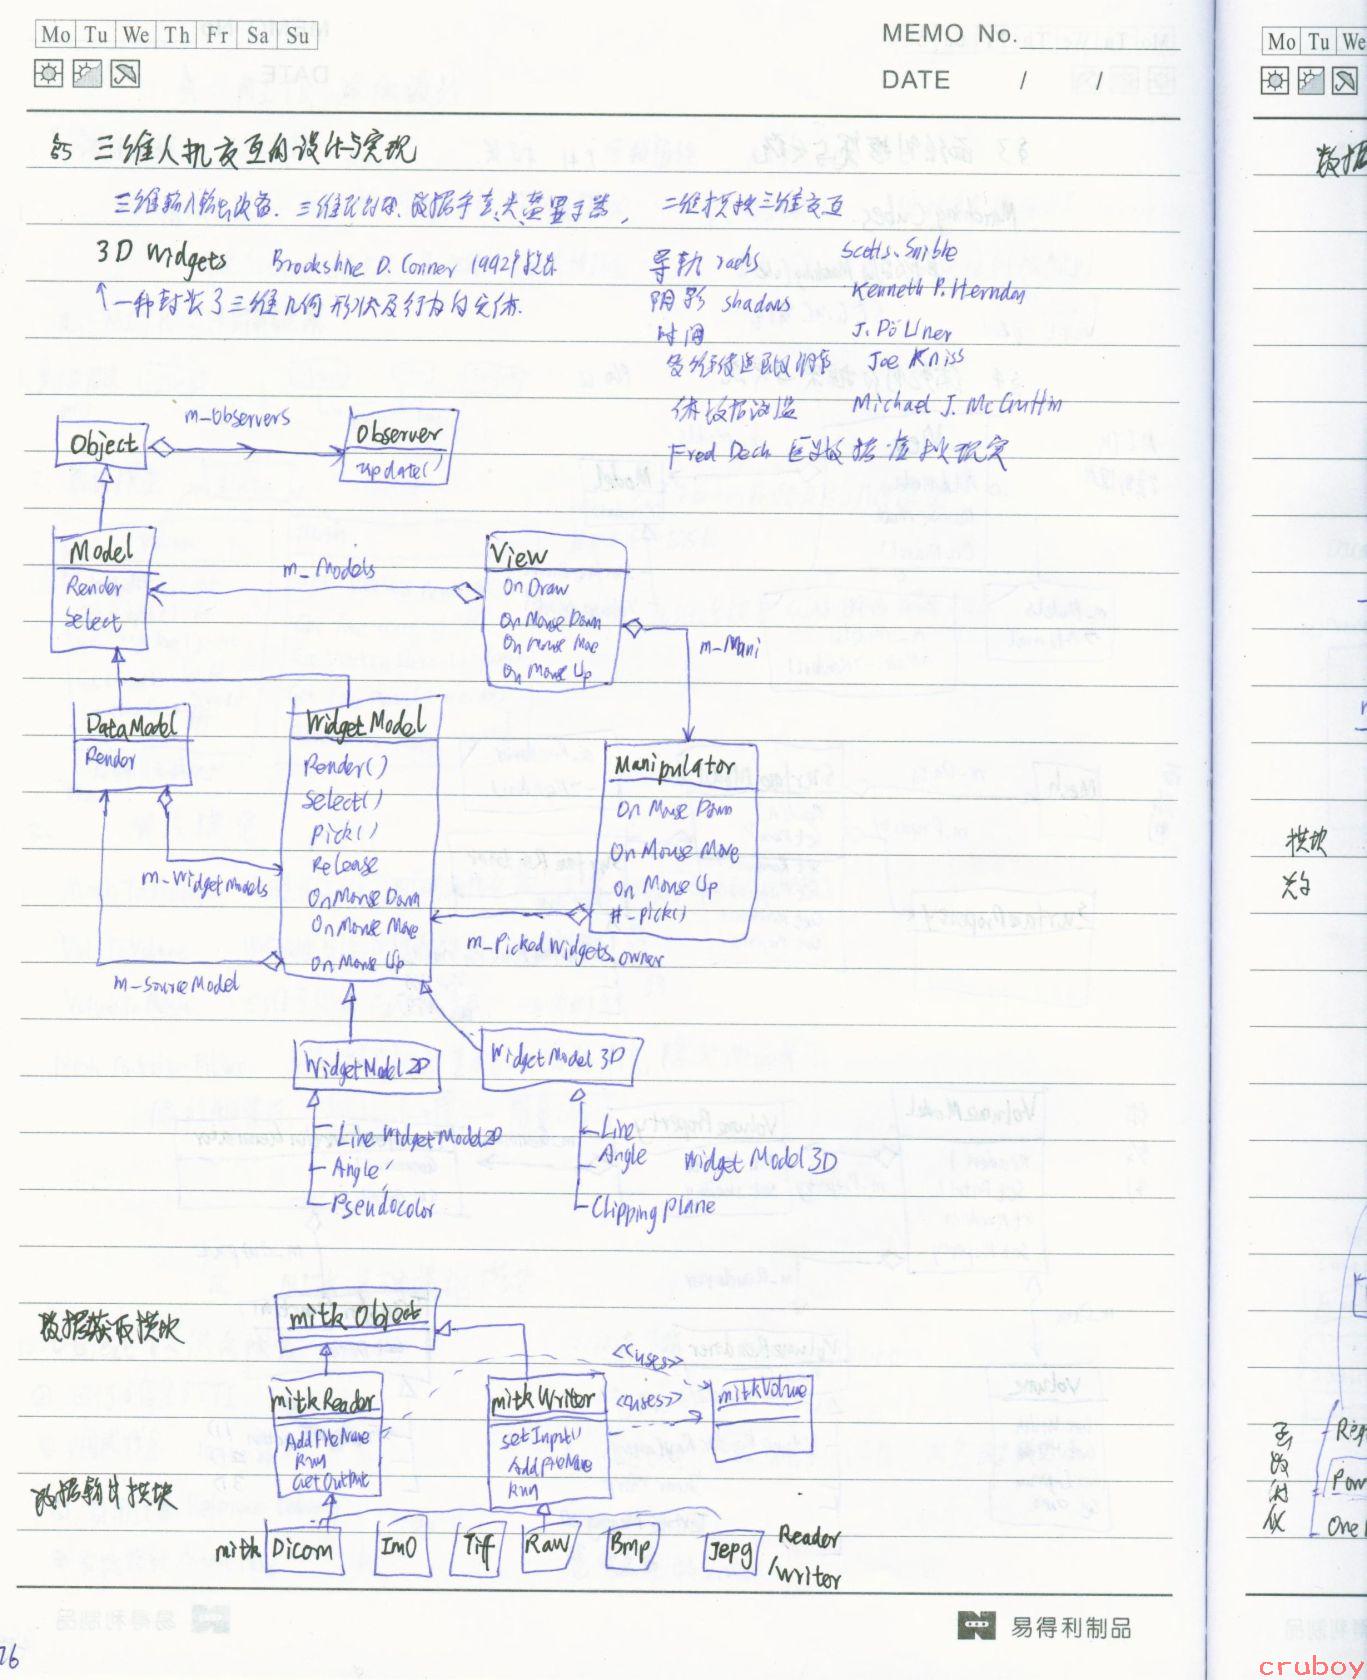 Mo Tu We Th Fr Sa Su
MEMO No.
DATE / /
§5 三维人机交互的设计与实现
三维输入输出设备. 三维鼠标. 数据手套, 头盔显示器, 二维扩技三维交互
3D Widgets Brookshire D. Conner 1992年提出
一种封装了三维几何形状及行为的实体.
导轨 rads Scotts. Snibbe
阴影 shadows Kenneth P. Herndon
时间 J. Döllner
Joe Kniss
体数据浏览 Michael J. McGuffin
Fred Dech 医学数据虚拟现实
Object
m_Observers
Observer
update()
Model
Render
Select
m_Models
View
OnDraw
On Mouse Down
On Mouse Move
On Mouse Up
m_Mani
DataModel
Render
WidgetModel
Render()
Select()
Pick()
Release
OnMouse Down
On Mouse Move
On Mouse Up
Manipulator
On Mouse Down
On Mouse Move
On Mouse Up
#-pick()
m_WidgetModels
m_PickedWidgets.owner
m_SourceModel
WidgetModel 2D
WidgetModel 3D
Line WidgetModel2D
Angle
Pseudocolor
Line
Angle Widget Model 3D
Clipping plane
数据获取模块
mitk Object
<<uses>>
mitkReader
AddFileName
Run
GetOutput
mitkWriter
setInput()
AddFileName
Run
<<uses>>
mitkVolume
数据输出模块
mitk Dicom Im0 Tiff Raw Bmp Jepg Reader
/writer
易得利制品
76
Mo Tu We
数据
模块
Reg
Pow
One
cruboy